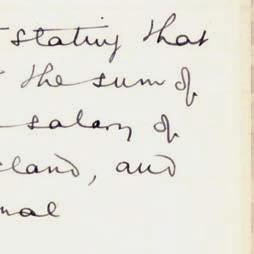 stating that
the sum of
salary of
land, and
nal